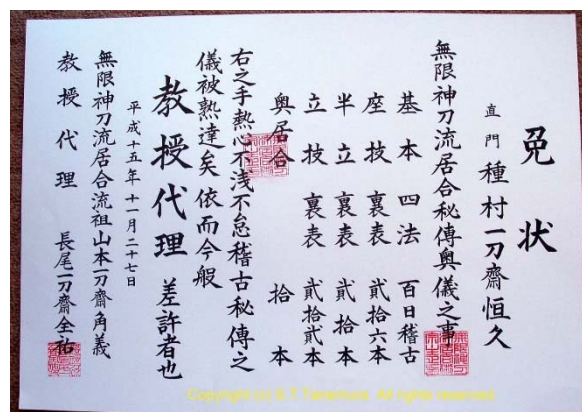 免状
直門 種村一刀齋恒久
無限神刀流居合秘傳奥儀之事
基本 四法 百日稽古
座技 裏表 貳拾六本
半立 裏表 貳拾本
立技 裏表 貳拾貳本
奥居合 拾本
右之手熱心不浅不怠稽古秘傳之
儀被熟達矣依而今般
教授代理 差許者也
平成十五年十一月二十七日
無限神刀流居合流祖山本一刀齋角義
教授代理 長尾一刀齋全祐
Copyright (c) S.T. Tanemura. All rights reserved.